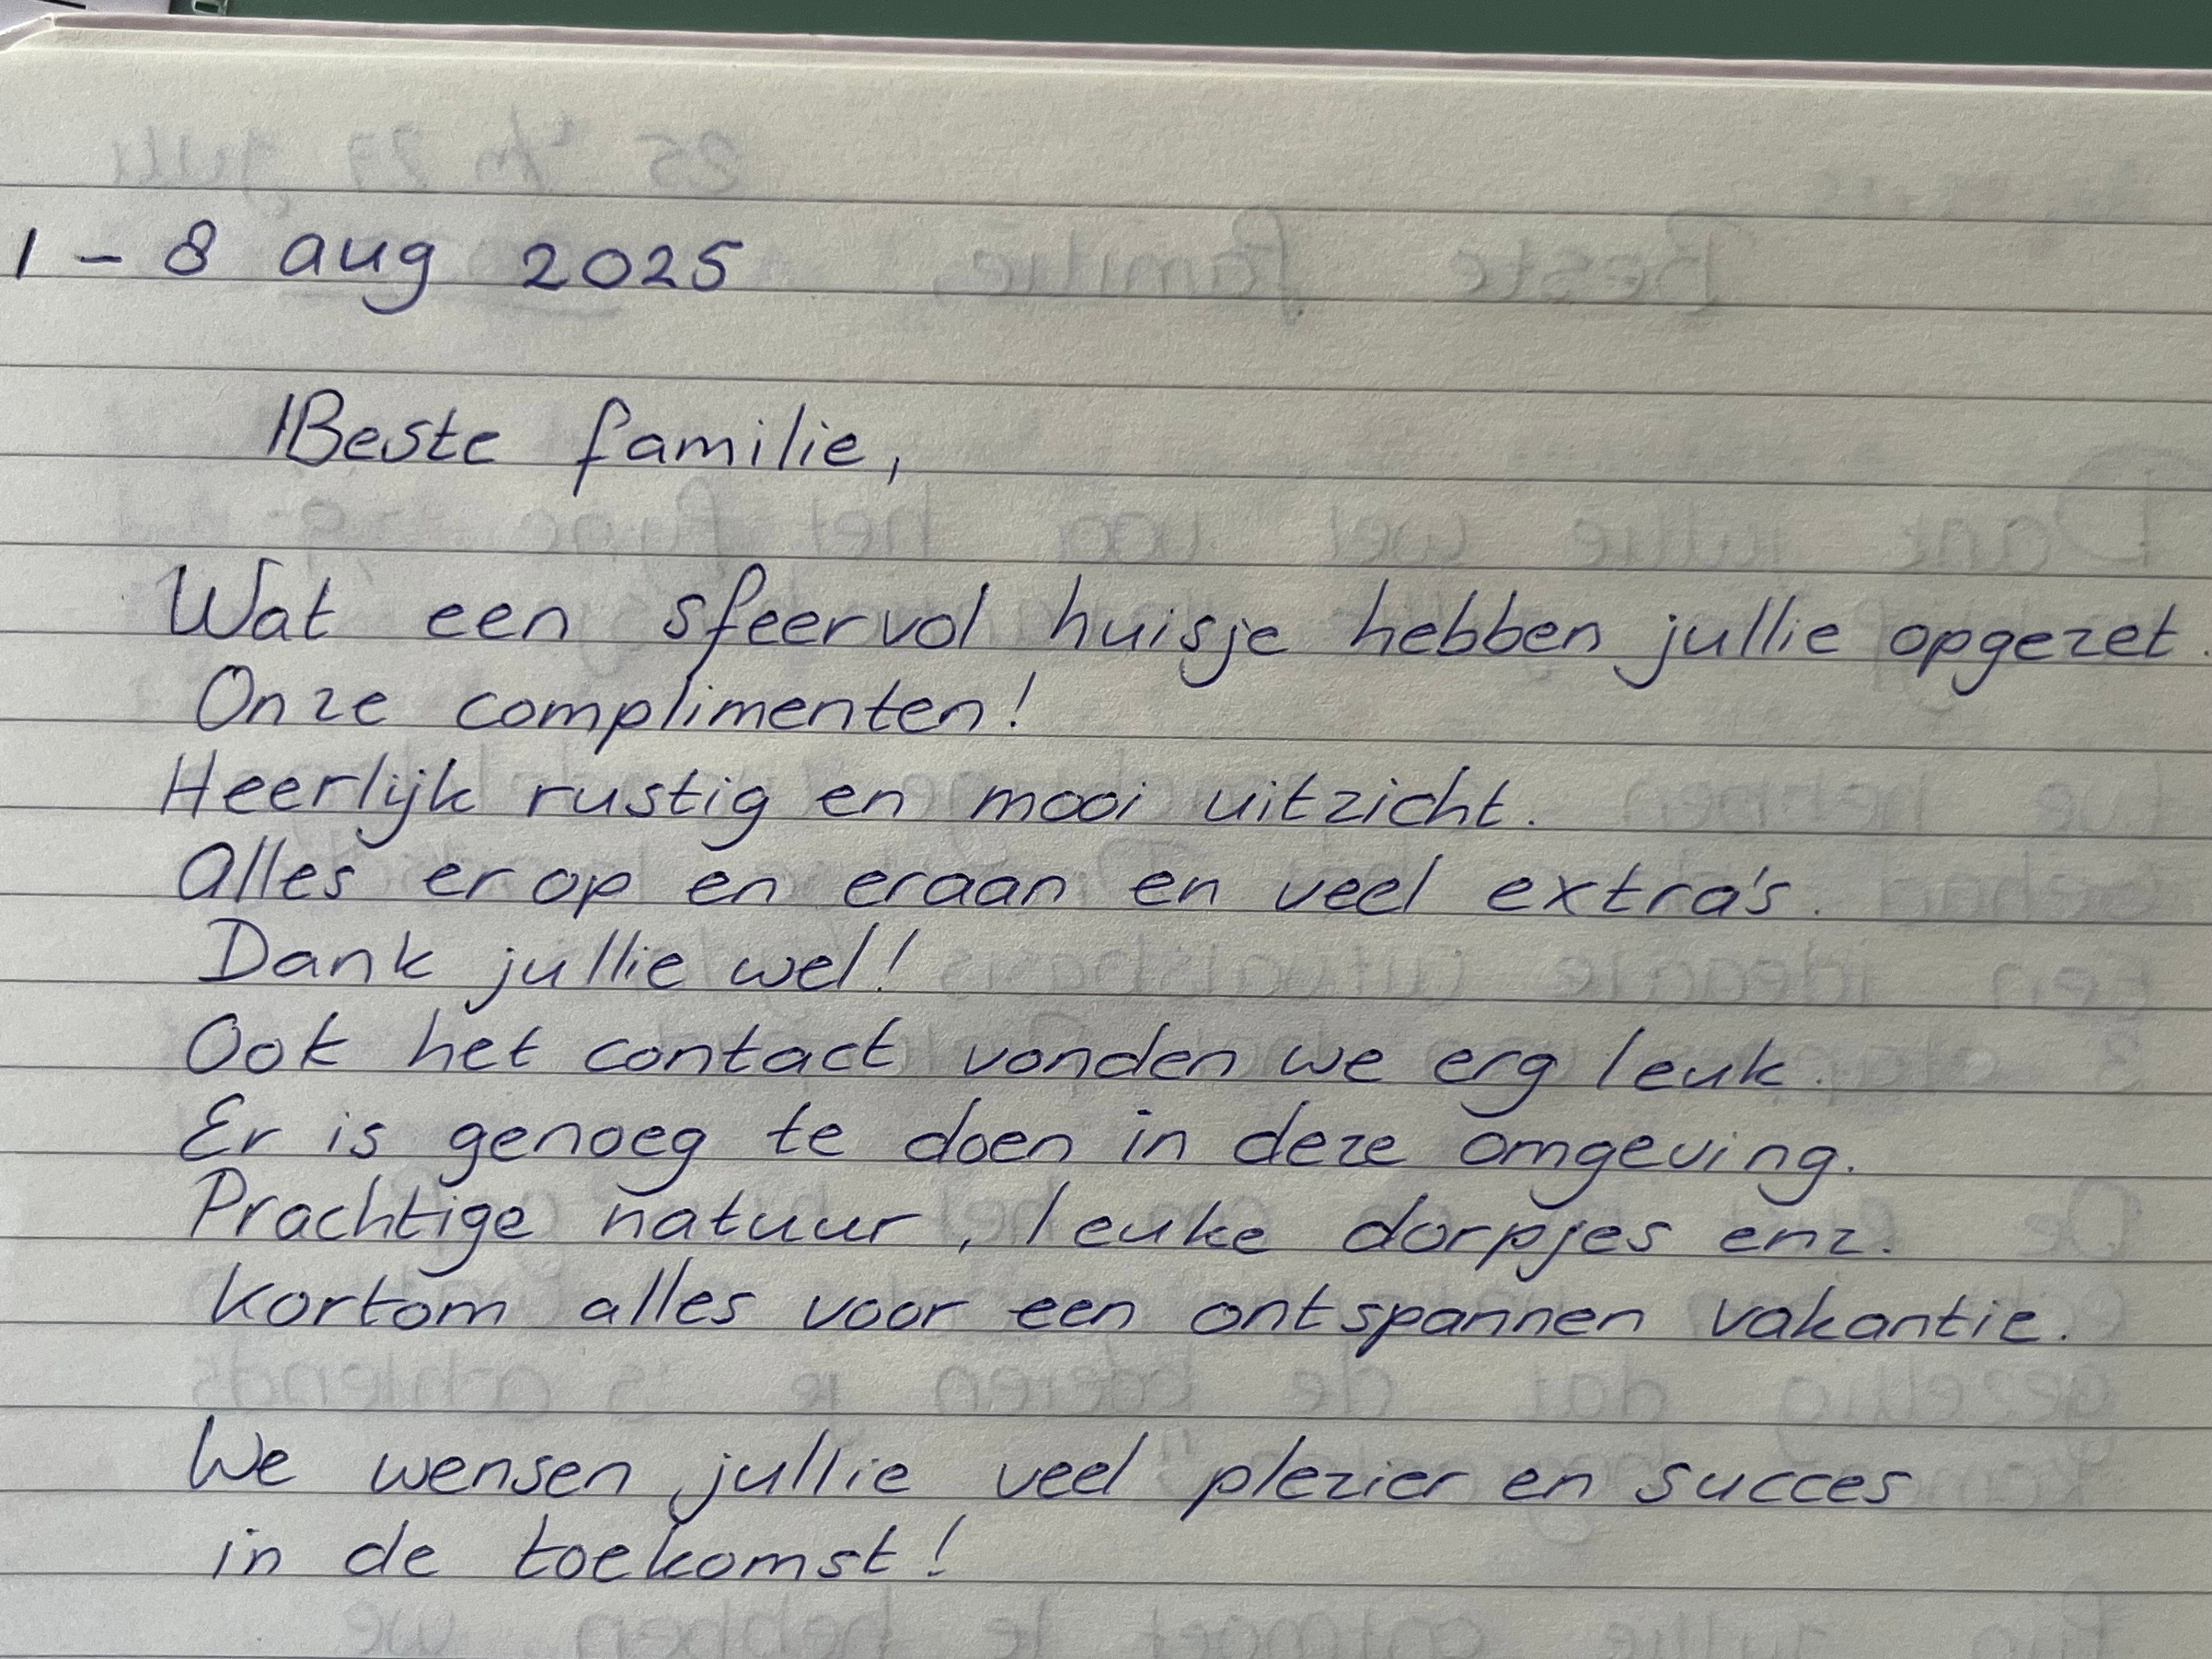 1 - 8 aug 2025
Beste familie,
Wat een sfeervol huisje hebben jullie opgezet.
Onze complimenten!
Heerlijk rustig en mooi uitzicht.
Alles erop en eraan en veel extra's.
Dank jullie wel!
Ook het contact vonden we erg leuk.
Er is genoeg te doen in deze omgeving.
Prachtige natuur, leuke dorpjes enz.
Kortom alles voor een ontspannen vakantie.
We wensen jullie veel plezier en succes
in de toekomst!